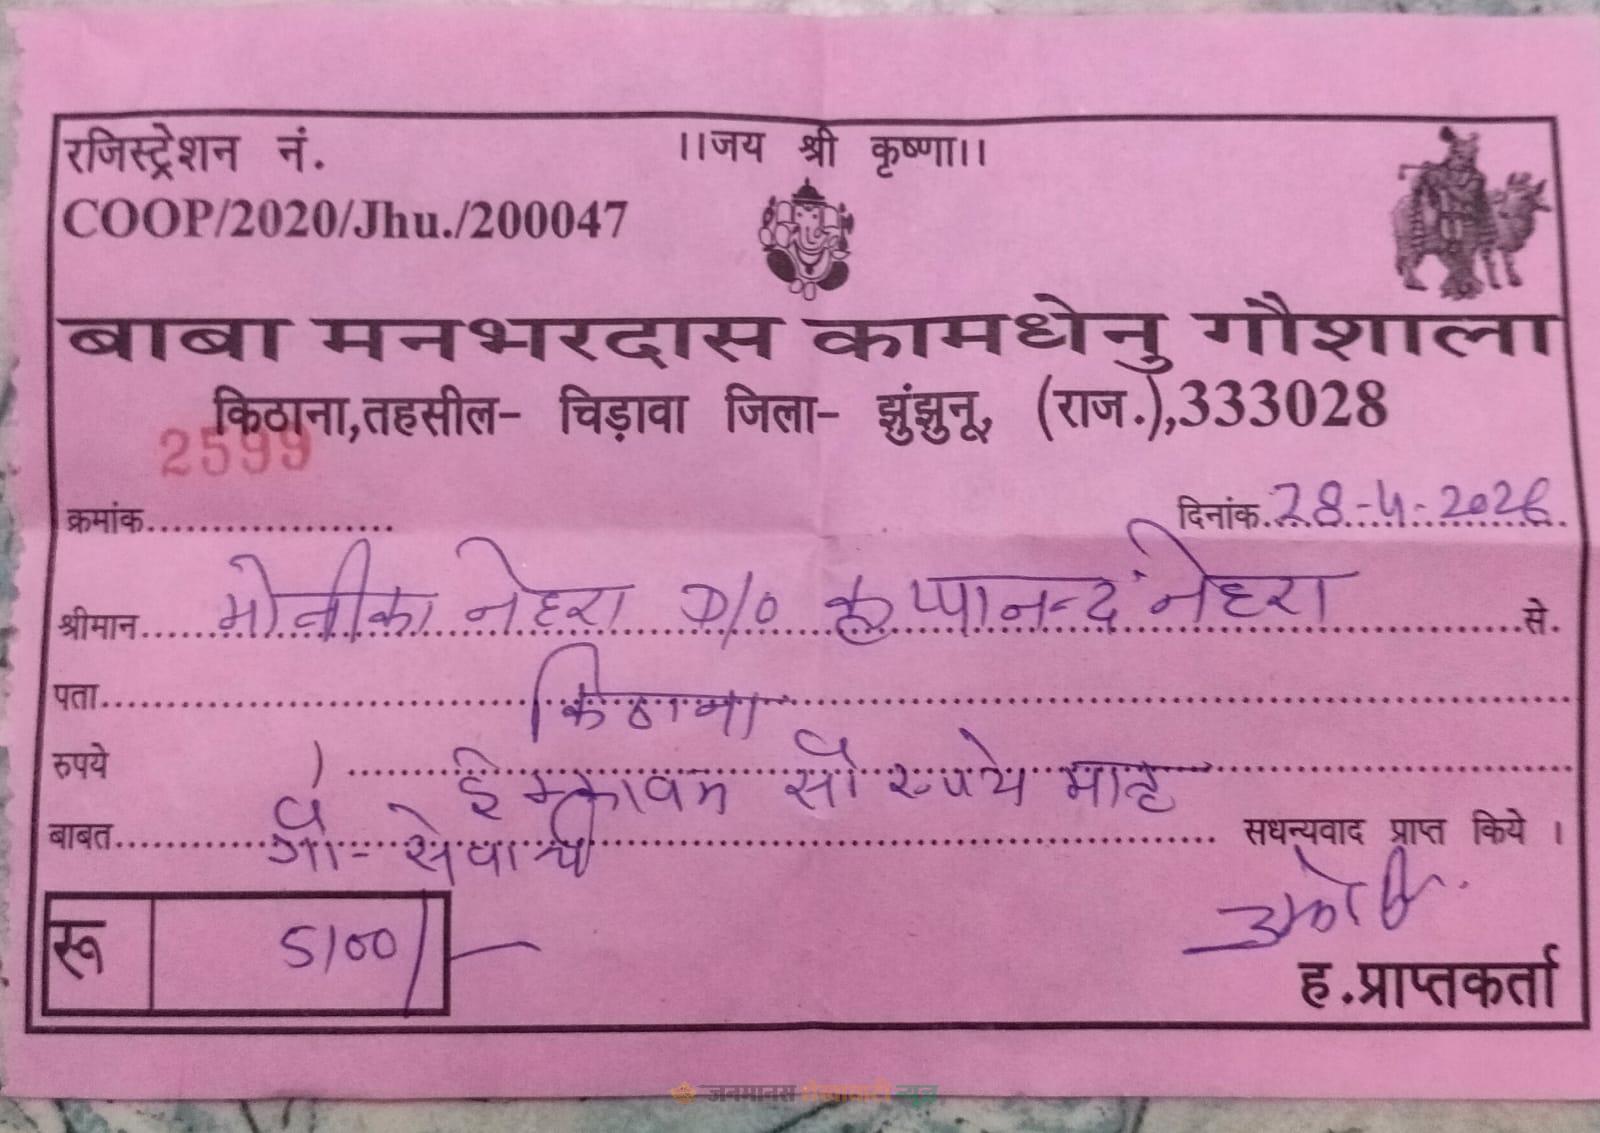 रजिस्ट्रेशन नं.
।।जय श्री कृष्णा।।
COOP/2020/Jhu./200047
बाबा मनभरदास कामधेनु गौशाला
किठाना,तहसील- चिड़ावा जिला- झुंझुनू, (राज.),333028
2599
क्रमांक....................
दिनांक.28-4-2026
श्रीमान......मोनीका नेहरा D/O कृष्णानन्द नेहरा......से.
पता......किठाना......
रुपये ......ईक्कावन सौ रुपये मात्र
बाबत......गौ-सेवार्थ...... सधन्यवाद प्राप्त किये ।
रू 5100/-
ह.प्राप्तकर्ता
जनमानस शेखावाटी न्यूज